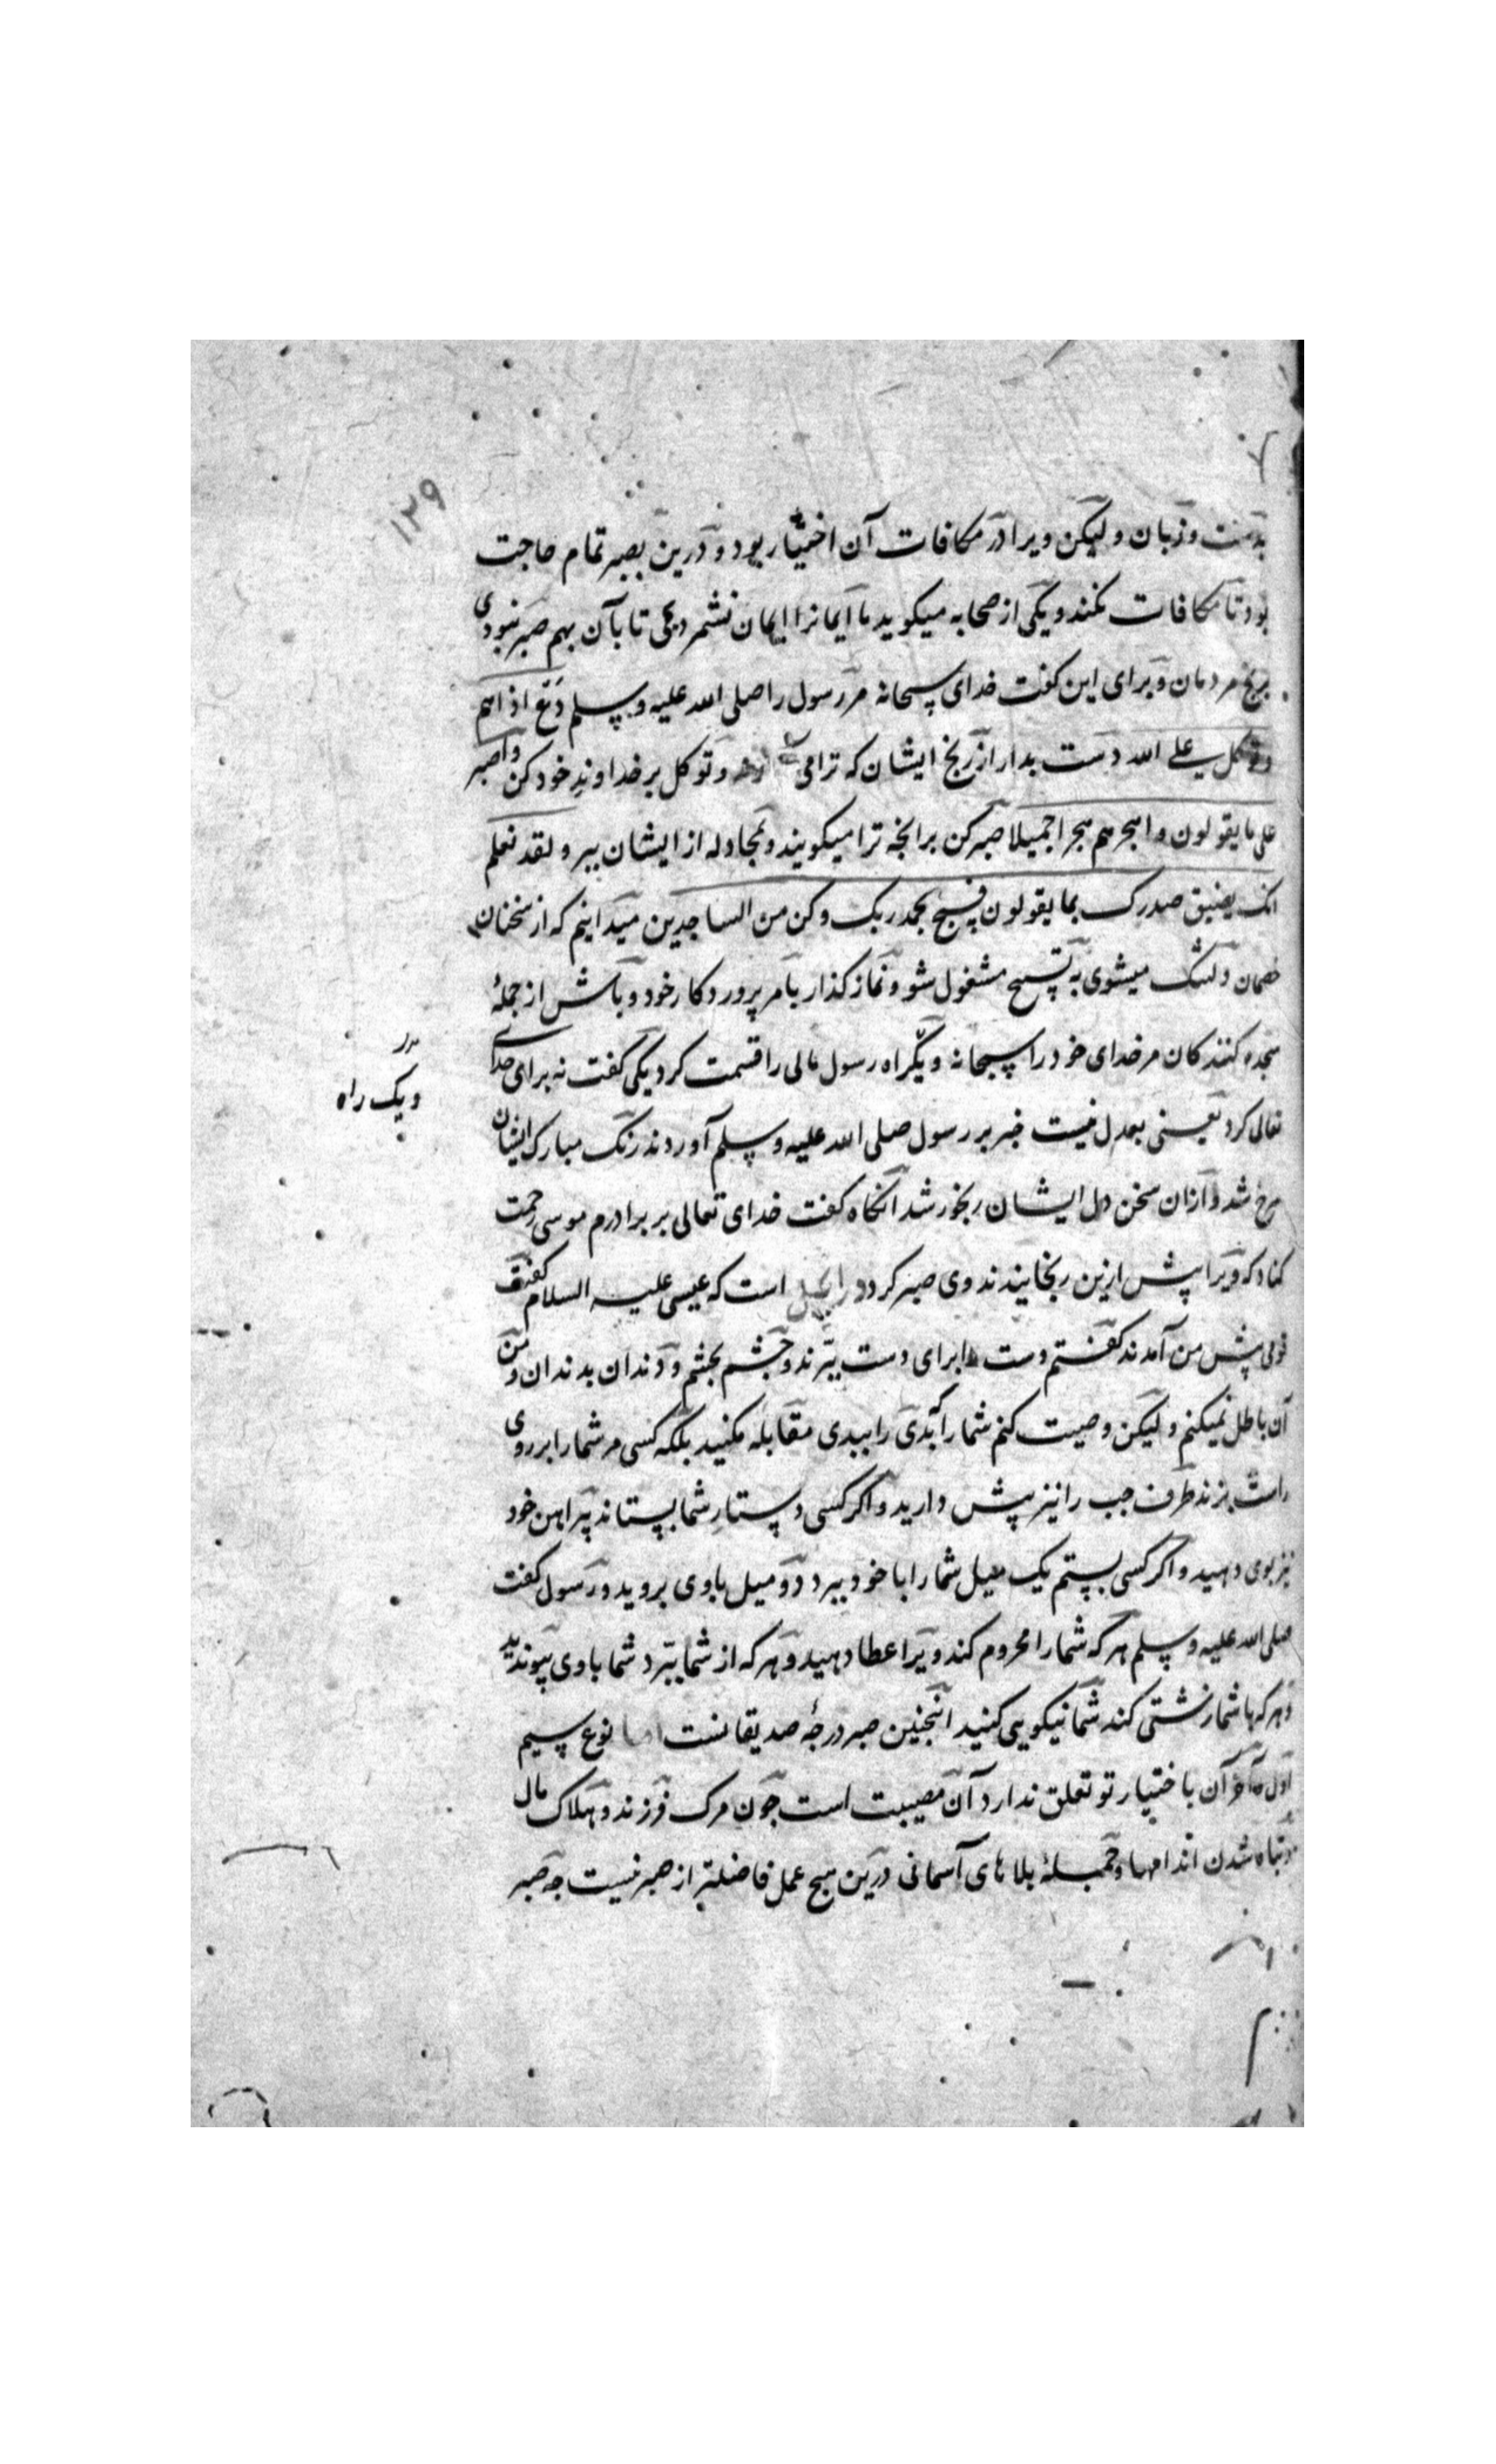 ۱۳۹
بدست و زبان و لیکن ویرا در مکافات آن اختیار بود و درین بصبر تمام حاجت
بود تا مکافات نکند و یکی از صحابه میکوید ما ایمانرا ایمان نشمردیمی تا بآن بهم صبر نبودی
برنج مردمان و برای این کفت خدای سبحانه مر رسول را صلی الله علیه و سلم دع اذاهم
وتوکل علی الله دست بدار از رنج ایشان که ترا می و توکل بر خداوند خود کن واصبر
علی ما یقولون واهجرهم هجرا جمیلا صبر کن برانچه ترا میکویند و بمجادله از ایشان ببر ولقد نعلم
انک یضیق صدرک بما یقولون فسبح بحمد ربک وکن من الساجدین میدانیم که از سخنان
خصمان دلتنک میشوی به تسبیح مشغول شو و نماز کذار بامر پروردکار خود و باش از جملهٔ
سجده کنندکان مر خدای خود را سبحانه و یکراه رسول مالی را قسمت کرد یکی کفت نه برای خدای
و یک راه
تعالی کرد یعنی بعدل نیست خبر بر رسول صلی الله علیه و سلم آوردند رنک مبارک ایشان
سرخ شد و ازان سخن دل ایشان رنجور شد آنکاه کفت خدای تعالی بر برادرم موسی رحمت
کناد که ویرا پیش ازین رنجانیدند وی صبر کرد در انجیل است که عیسی علیه السلام کفت
قومی پیش من آمدند کفتم دست را برای دست ببرند و چشم بچشم و دندان بدندان و من
آن باطل نمیکنم و لیکن وصیت کنم شما را که بدی را ببدی مقابله مکنید بلکه کسی مر شما را بر روی
راست بزند طرف چپ را نیز پیش دارید و اکر کسی دستار شما بستاند پیراهن خود
نیز بوی دهید و اکر کسی بستم یک میل شما را با خود ببرد دو میل باوی بروید و رسول کفت
صلی الله علیه و سلم هر که شما را محروم کند ویرا عطا دهید و هر که از شما ببرد شما باوی پیوندید
و هر که با شما زشتی کند شما نیکویی کنید اینچنین صبر درجهٔ صدیقانست اما نوع سیم
اول و آخر آن باختیار تو تعلق ندارد آن مصیبت است چون مرک فرزند و هلاک مال
و تباه شدن اندامها و جملهٔ بلاهای آسمانی درین هیچ عمل فاضلتر از صبر نیست چه صبر